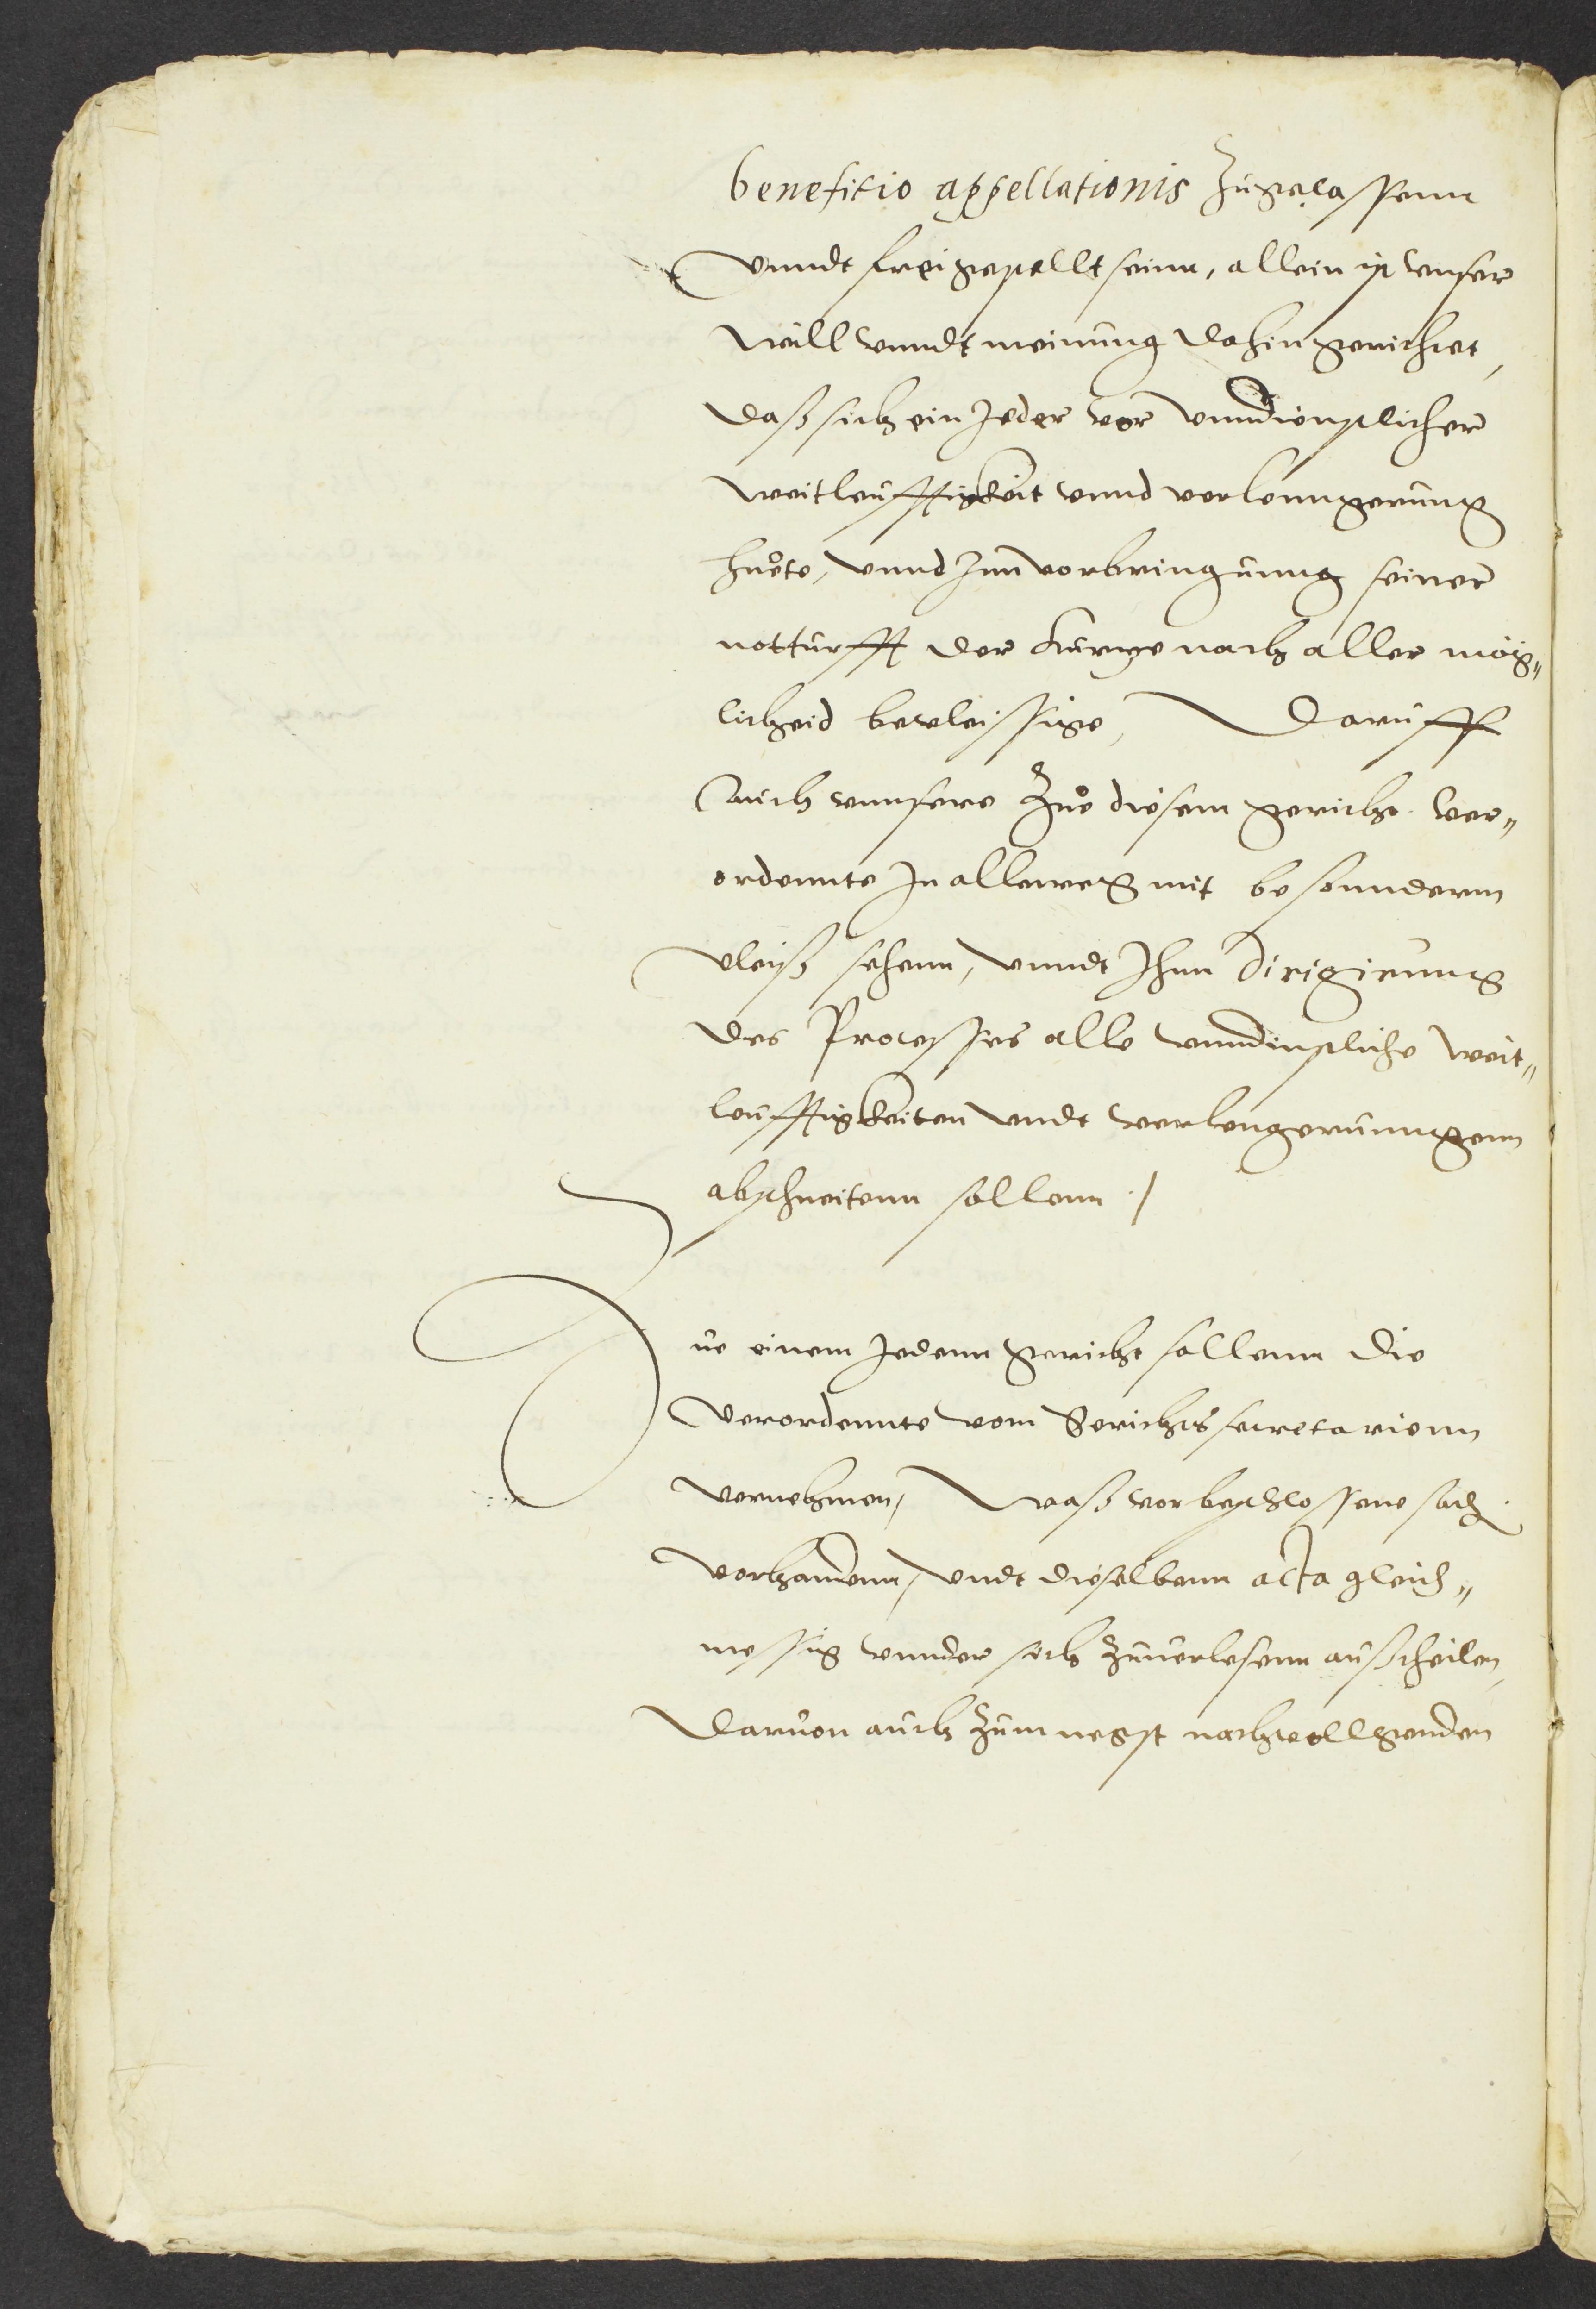 benefitio appellationis Zugelassenn
vnndt frei gestellt seinn, allein ist vnser
will vnndt meinung dahin gerichtet,
daß sich ein Jeder vor vnndienstlicher
weitleuffigkeit vnnd verlenngerung
huete, vnnd Inn vorbringunng seiner
notturfft der kurtze nach aller mög„
lichheid bevleissige, Daruff
auch vnnsere Zue diesem gericht ver„
ordennte In alleweg mit besonnderm
vleiß sehenn, vnndt Ihnn dirigirung
des Processes alle vnndinstliche weit„
leuffigkeiten vndt verlengerunngenn
abschneitenn sollenn ./
Zue einem Jedenn gericht sollenn die
verordennte vom Gerichts secretarienn
vernehmen, waß vor beschlossene sach
vorhanndenn, vndt dieselbenn acta gleich„
messig vnnder sich Zuuerlesenn außtheilen,
daruon auch Zum negst nachvollgenden